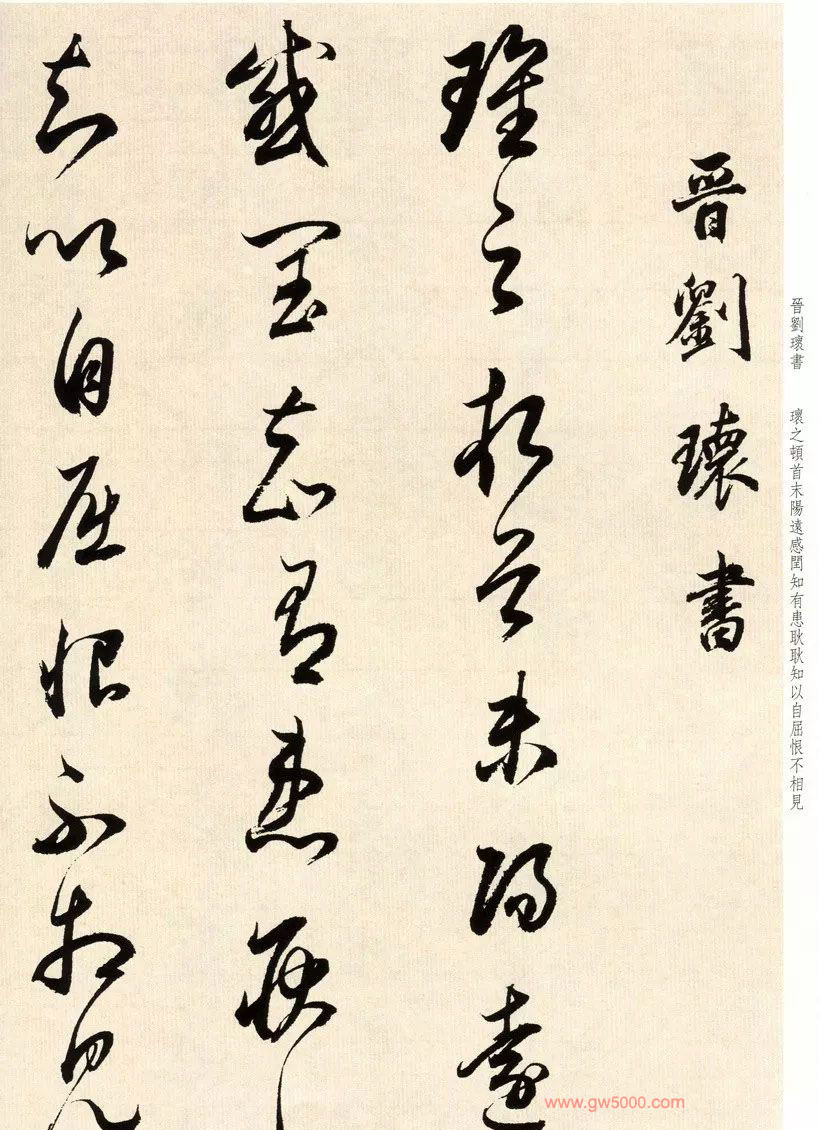 晉劉瓌書　瓌之頓首末陽遠感閏知有患耿耿知以自屈恨不相見
晋劉瓌書
瓌之頓首末陽遠
感閏知有患耿耿
知以自屈恨不相見
www.gw5000.com